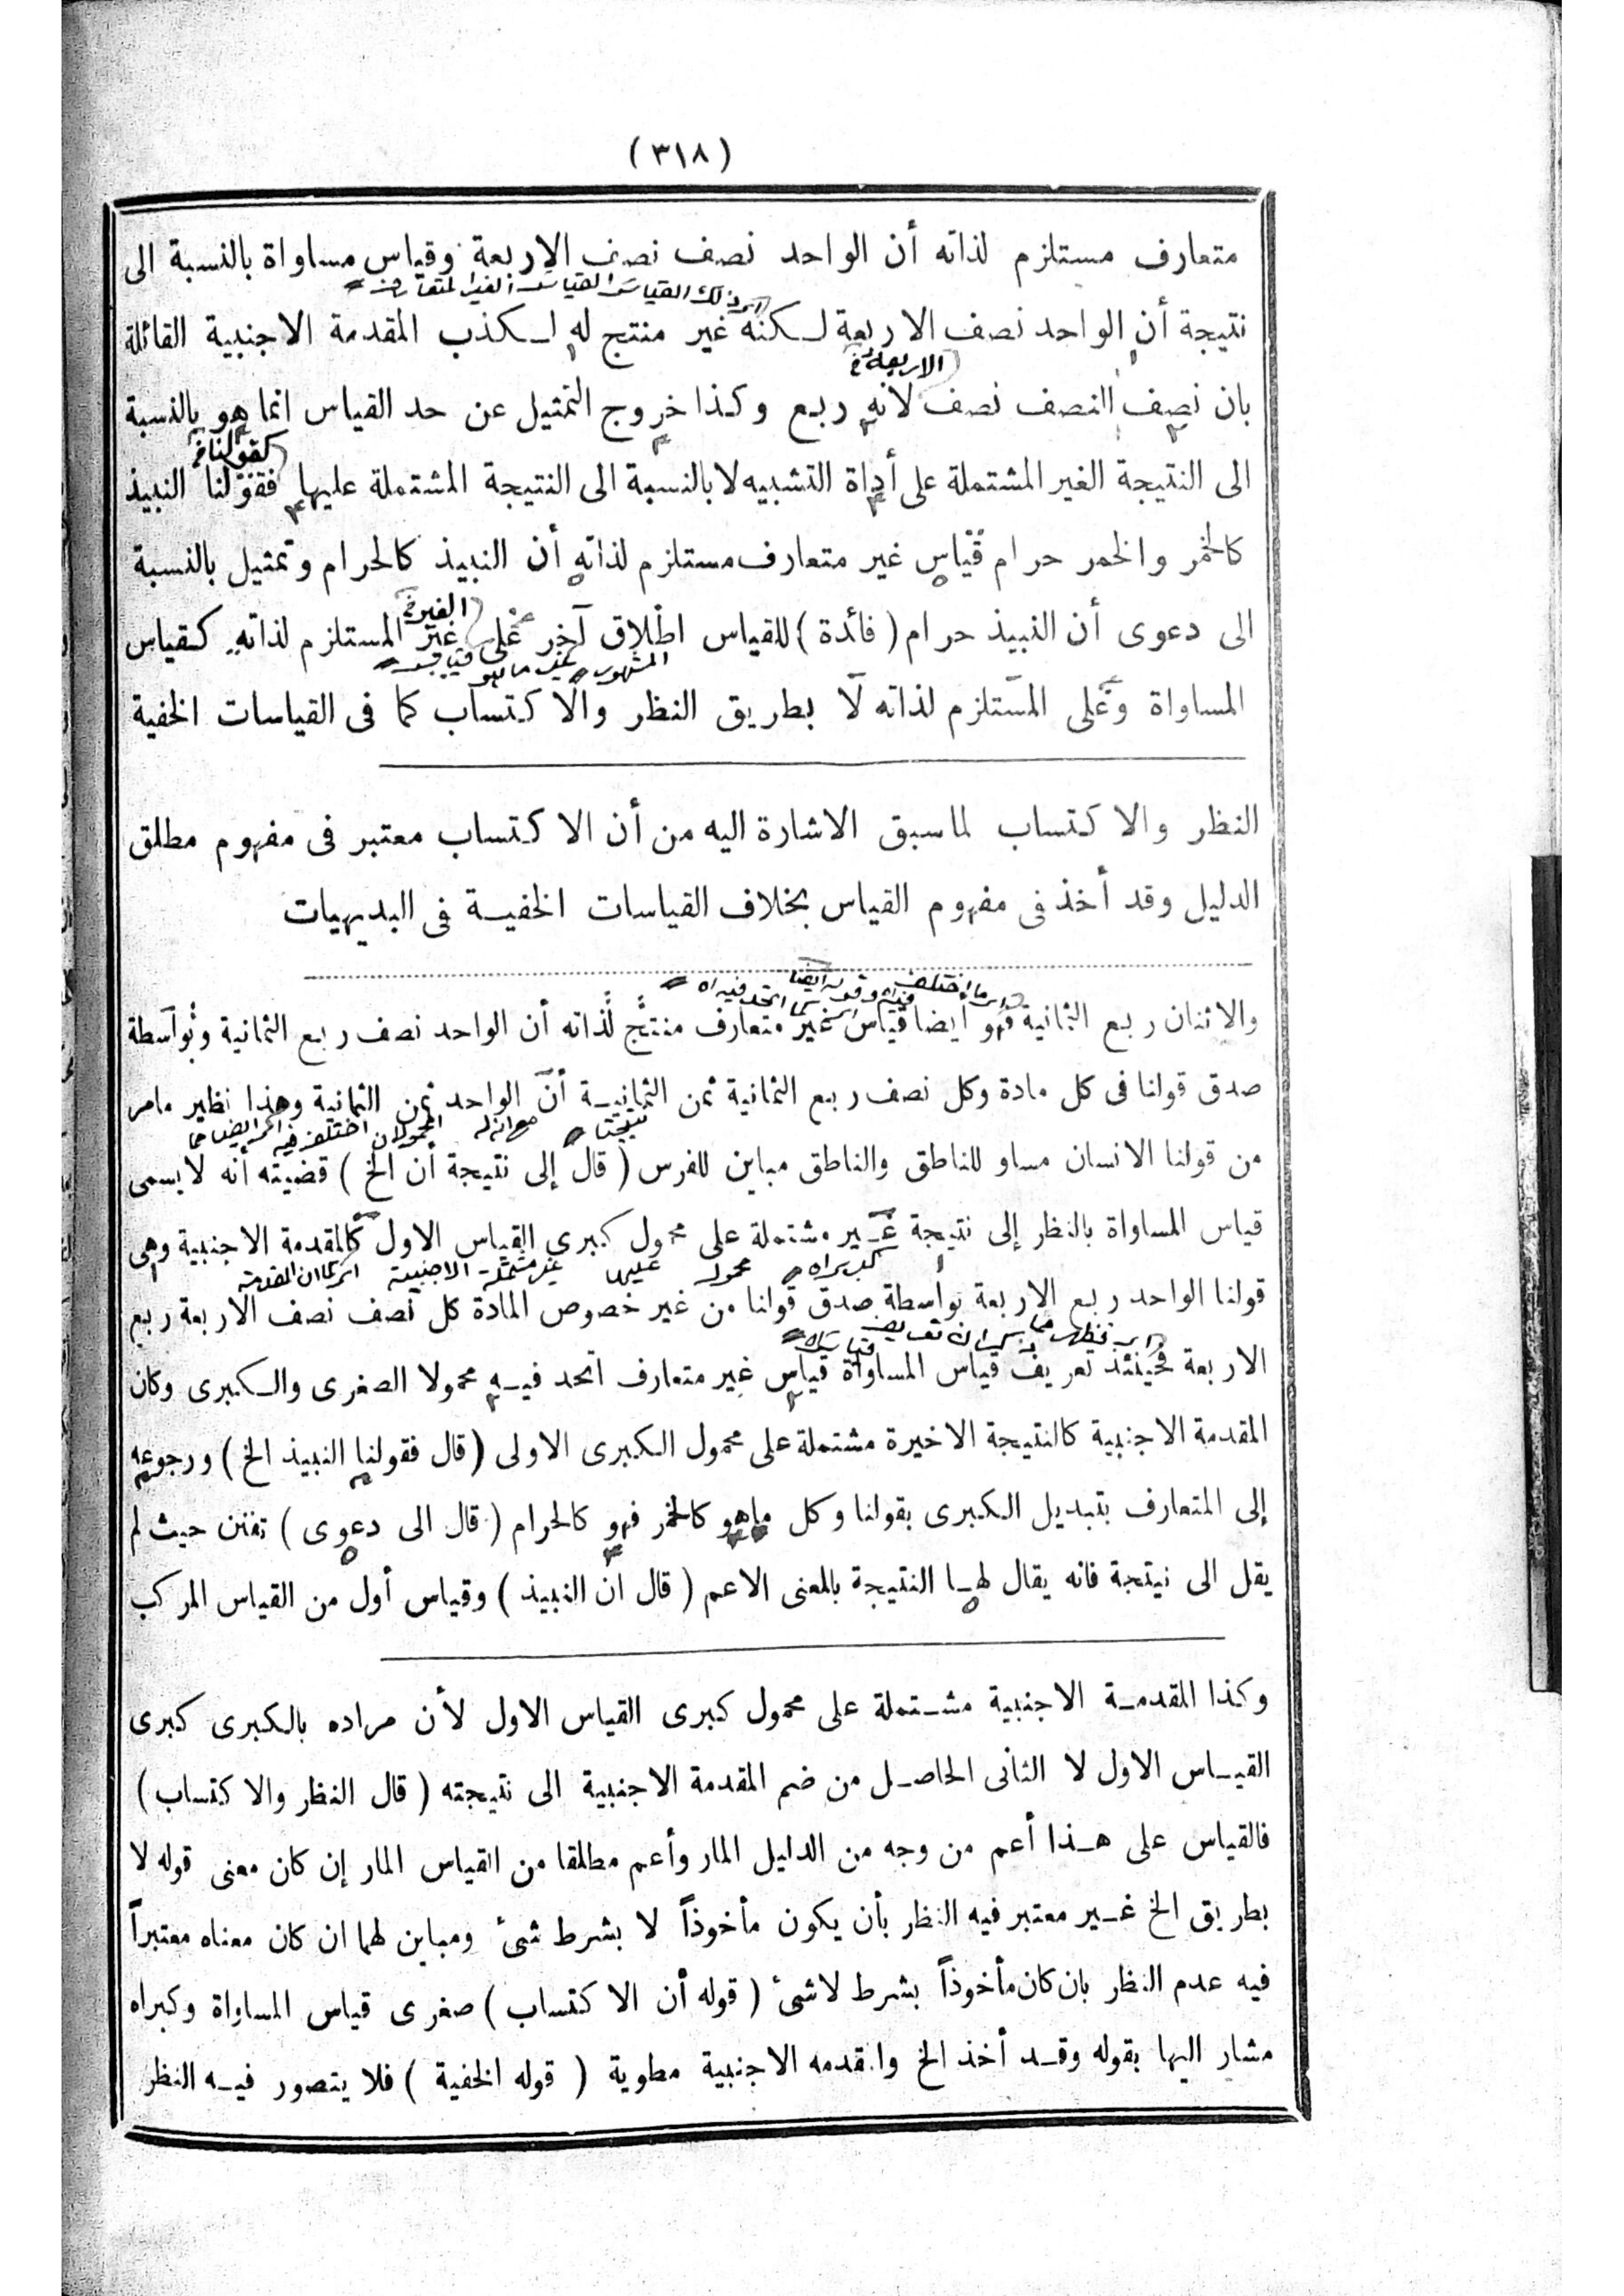 (٣١٨)
متعارف مستلزم لذاته أن الواحد نصف نصف الاربعة وقياس مساواة بالنسبة الى
نتيجة أن الواحد نصف الاربعة لكنه غير منتج له لكذب المقدمة الاجنبية القائلة
الاربعة
بان نصف النصف نصف لانه ربع وكذا خروج التمثيل عن حد القياس انما هو بالنسبة
كقولنا
الى النتيجة الغير المشتملة على أداة التشبيه لا بالنسبة الى النتيجة المشتملة عليها فقولنا النبيذ
كالخمر والخمر حرام قياس غير متعارف مستلزم لذاته أن النبيذ كالحرام وتمثيل بالنسبة
الغير
الى دعوى أن النبيذ حرام (فائدة) للقياس اطلاق آخر على غير المستلزم لذاته كقياس
المساواة وعلى المستلزم لذاته لا بطريق النظر والاكتساب كما فى القياسات الخفية
النظر والاكتساب لما سبق الاشارة اليه من أن الاكتساب معتبر فى مفهوم مطلق
الدليل وقد أخذ فى مفهوم القياس بخلاف القياسات الخفية فى البديهيات
والاثنان ربع الثمانية فهو ايضا قياس غير متعارف منتج لذاته أن الواحد نصف ربع الثمانية وبواسطة
صدق قولنا فى كل مادة وكل نصف ربع الثمانية ثمن الثمانية أن الواحد ثمن الثمانية وهذا نظير مامر
من قولنا الانسان مساو للناطق والناطق مباين للفرس (قال إلى نتيجة أن الخ) قضيته أنه لا يسمى
قياس المساواة بالنظر إلى نتيجة غير مشتملة على محمول كبرى القياس الاول كالمقدمة الاجنبية وهى
قولنا الواحد ربع الاربعة بواسطة صدق قولنا من غير خصوص المادة كل نصف نصف الاربعة ربع
الاربعة فحينئذ تعريف قياس المساواة قياس غير متعارف اتحد فيه محمولا الصغرى والكبرى وكان
المقدمة الاجنبية كالنتيجة الاخيرة مشتملة على محمول الكبرى الاولى (قال فقولنا النبيذ الخ) ورجوعه
إلى المتعارف بتبديل الكبرى بقولنا وكل ماهو كالخمر فهو كالحرام (قال الى دعوى) تفنن حيث لم
يقل الى نيتجة فانه يقال لها النتيجة بالمعنى الاعم (قال ان النبيذ) وقياس أول من القياس المركب
وكذا المقدمة الاجنبية مشتملة على محمول كبرى القياس الاول لأن مراده بالكبرى كبرى
القياس الاول لا الثانى الحاصل من ضم المقدمة الاجنبية الى نتيجته (قال النظر والاكتساب)
فالقياس على هذا أعم من وجه من الدليل المار وأعم مطلقا من القياس المار إن كان معنى قوله لا
بطريق الخ غير معتبر فيه النظر بأن يكون مأخوذاً لا بشرط شئ ومباين لهما ان كان معناه معتبراً
فيه عدم النظر بان كان مأخوذاً بشرط لاشئ (قوله أن الاكتساب) صغرى قياس المساواة وكبراه
مشار اليها بقوله وقد أخذ الخ والمقدمه الاجنبية مطوية (قوله الخفية) فلا يتصور فيه النظر